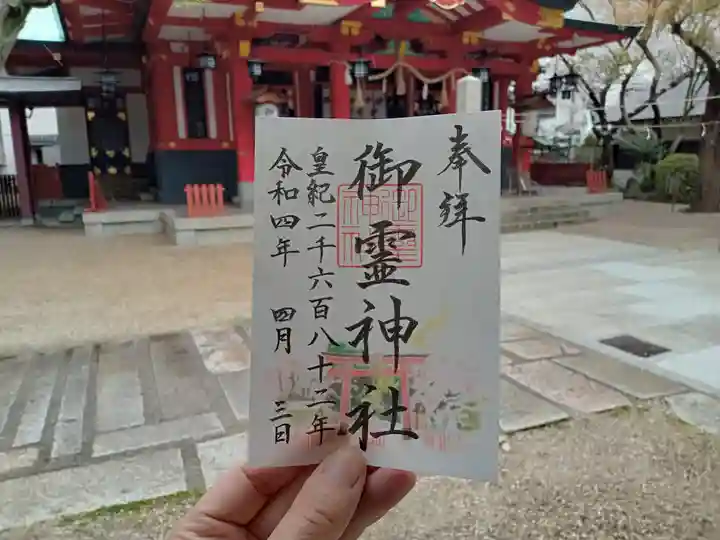 奉拝
御霊神社
皇紀二千六百八十二年
令和四年 四月 三日